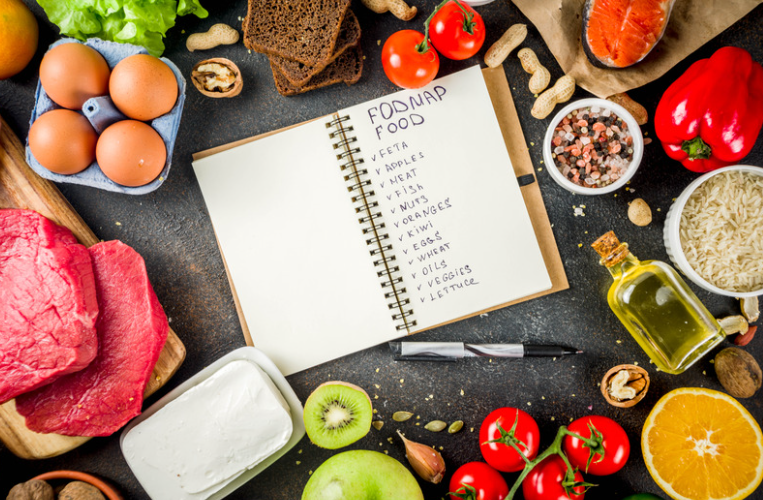 FODNAP
FOOD
✓ FETA
✓ APPLES
✓ MEAT
✓ FISH
✓ NUTS
✓ ORANGES
✓ KIWI
✓ EGGS
✓ WHEAT
✓ OILS
✓ VEGGIES
✓ LETTUCE